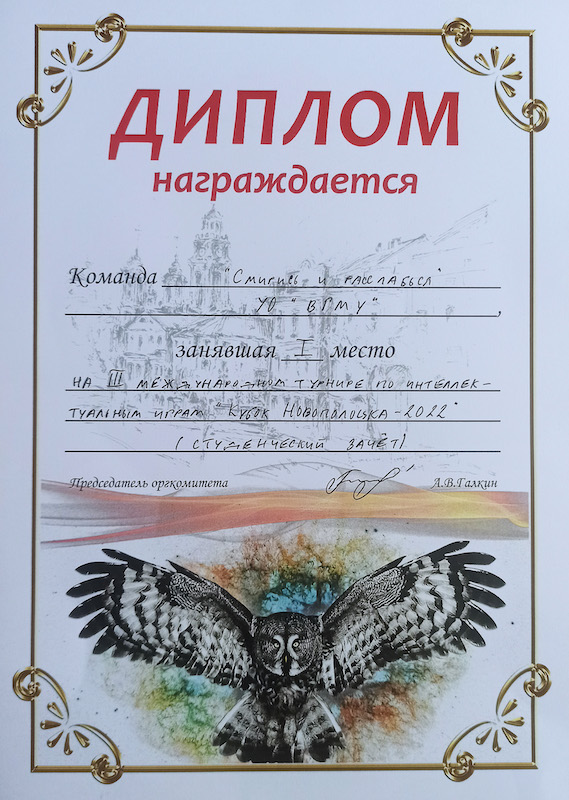 ДИПЛОМ
награждается
Команда "Смирись и расслабься"
УО "ВГМУ",
занявшая I место
на III международном турнире по интеллек-
туальным играм "Кубок Новополоцка-2022"
(студенческий зачёт)
Председатель оргкомитета А.В.Галкин